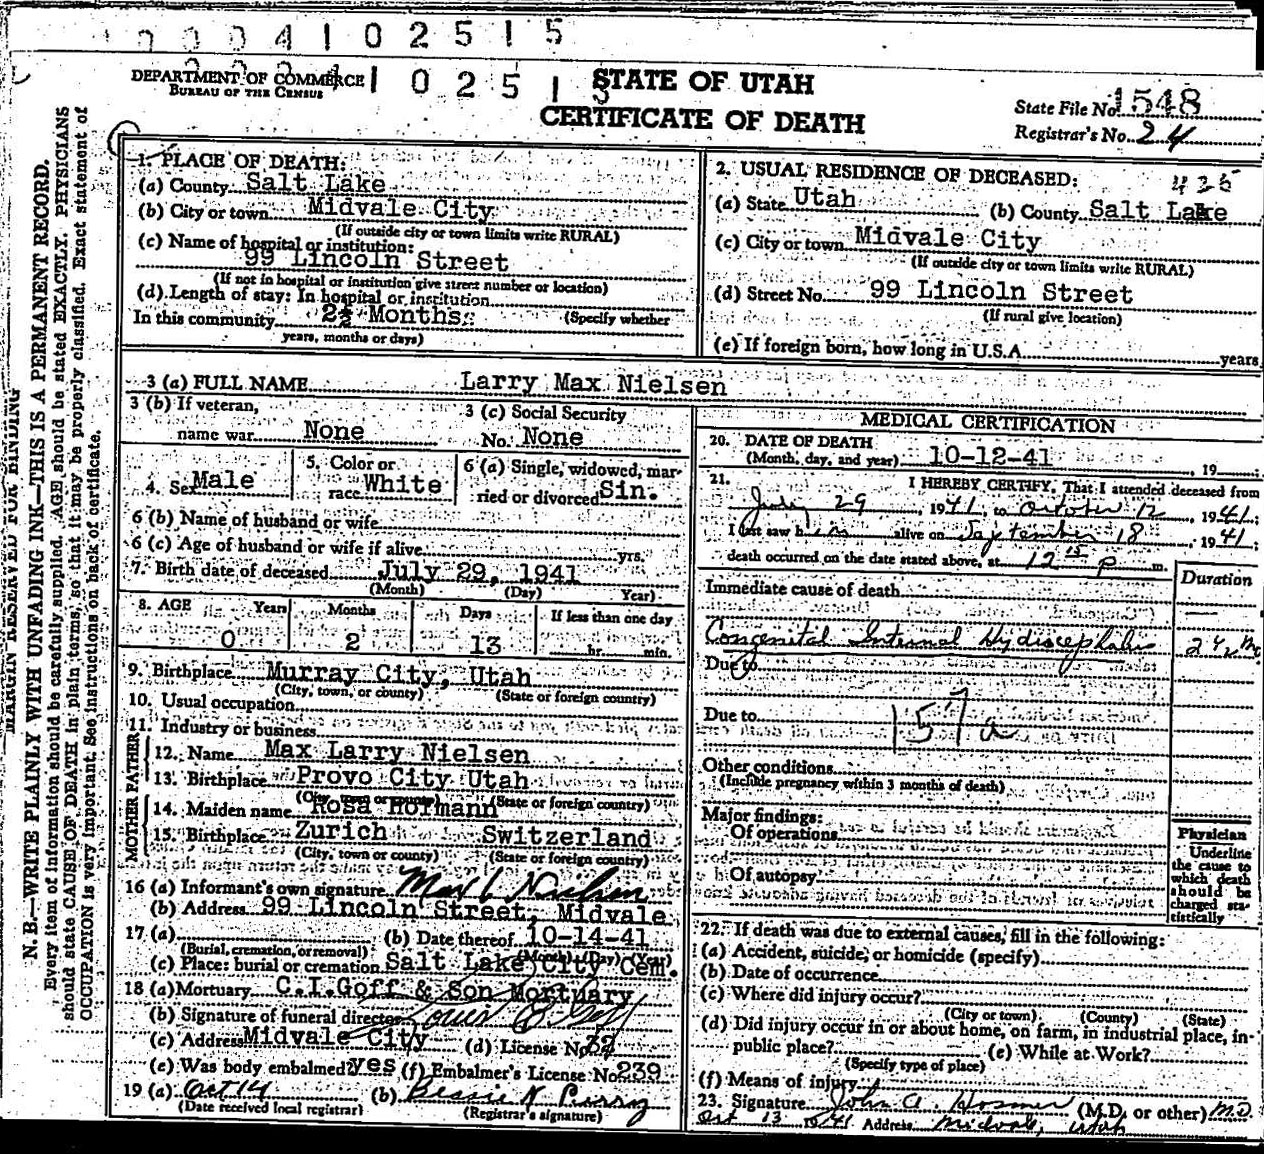 0004102515
0004102515
DEPARTMENT OF COMMERCE
BUREAU OF THE CENSUS
STATE OF UTAH
CERTIFICATE OF DEATH
State File No. 1548
Registrar's No. 24
MARGIN RESERVED FOR BINDING
N. B.—WRITE PLAINLY WITH UNFADING INK—THIS IS A PERMANENT RECORD.
Every item of information should be carefully supplied. AGE should be stated EXACTLY. PHYSICIANS
should state CAUSE OF DEATH in plain terms, so that it may be properly classified. Exact statement of
OCCUPATION is very important. See instructions on back of certificate.
1. PLACE OF DEATH:
(a) County Salt Lake
(b) City or town Midvale City
(If outside city or town limits write RURAL)
(c) Name of hospital or institution:
99 Lincoln Street
(If not in hospital or institution give street number or location)
(d) Length of stay: In hospital or institution
In this community 2½ Months. (Specify whether
years, months or days)
2. USUAL RESIDENCE OF DECEASED: 425
(a) State Utah (b) County Salt Lake
(c) City or town Midvale City
(If outside city or town limits write RURAL)
(d) Street No. 99 Lincoln Street
(If rural give location)
(e) If foreign born, how long in U.S.A. years
3 (a) FULL NAME Larry Max Nielsen
3 (b) If veteran,
name war None
3 (c) Social Security
No. None
4. Sex Male
5. Color or
race White
6 (a) Single, widowed, mar-
ried or divorced Sin.
6 (b) Name of husband or wife
6 (c) Age of husband or wife if alive yrs.
7. Birth date of deceased July 29, 1941
(Month) (Day) Year)
8. AGE Years Months Days If less than one day
0 2 13 hr. min.
9. Birthplace Murray City, Utah
(City, town, or county) (State or foreign country)
10. Usual occupation
11. Industry or business
FATHER
12. Name Max Larry Nielsen
13. Birthplace Provo City Utah
(City, town or county) (State or foreign country)
MOTHER
14. Maiden name Rosa Hofmann
15. Birthplace Zurich Switzerland
(City, town or county) (State or foreign country)
16 (a) Informant's own signature Max L Nielsen
(b) Address 99 Lincoln Street, Midvale
17 (a) (b) Date thereof 10-14-41
(Burial, cremation, or removal) (Month) (Day) (Year)
(c) Place: burial or cremation Salt Lake City Cem.
18 (a) Mortuary C.I.Goff & Son Mortuary
(b) Signature of funeral director
(c) Address Midvale City (d) License No.
(e) Was body embalmed? yes (f) Embalmer's License No. 239
19 (a) Oct 14 (b) Bessie
(Date received local registrar) (Registrar's signature)
MEDICAL CERTIFICATION
20. DATE OF DEATH
(Month, day, and year) 10-12-41, 19
21. I HEREBY CERTIFY, That I attended deceased from
July 29, 1941, to October 12, 1941;
I last saw him alive on September 18, 1941;
death occurred on the date stated above, at 12 15 P m.
Duration
Immediate cause of death
Congenital Internal Hydrocephalis 2½ Mo
Due to
Due to 157 a
Other conditions
(Include pregnancy within 3 months of death)
Major findings:
Of operations
Of autopsy
Physician
Underline
the cause to
which death
should be
charged sta-
tistically
22. If death was due to external causes, fill in the following:
(a) Accident, suicide, or homicide (specify)
(b) Date of occurrence
(c) Where did injury occur?
(City or town) (County) (State)
(d) Did injury occur in or about home, on farm, in industrial place, in-
public place? (e) While at Work?
(Specify type of place)
(f) Means of injury
23. Signature John A. Hosmer (M.D. or other) M.D.
Oct 13 1941 Address Midvale, Utah